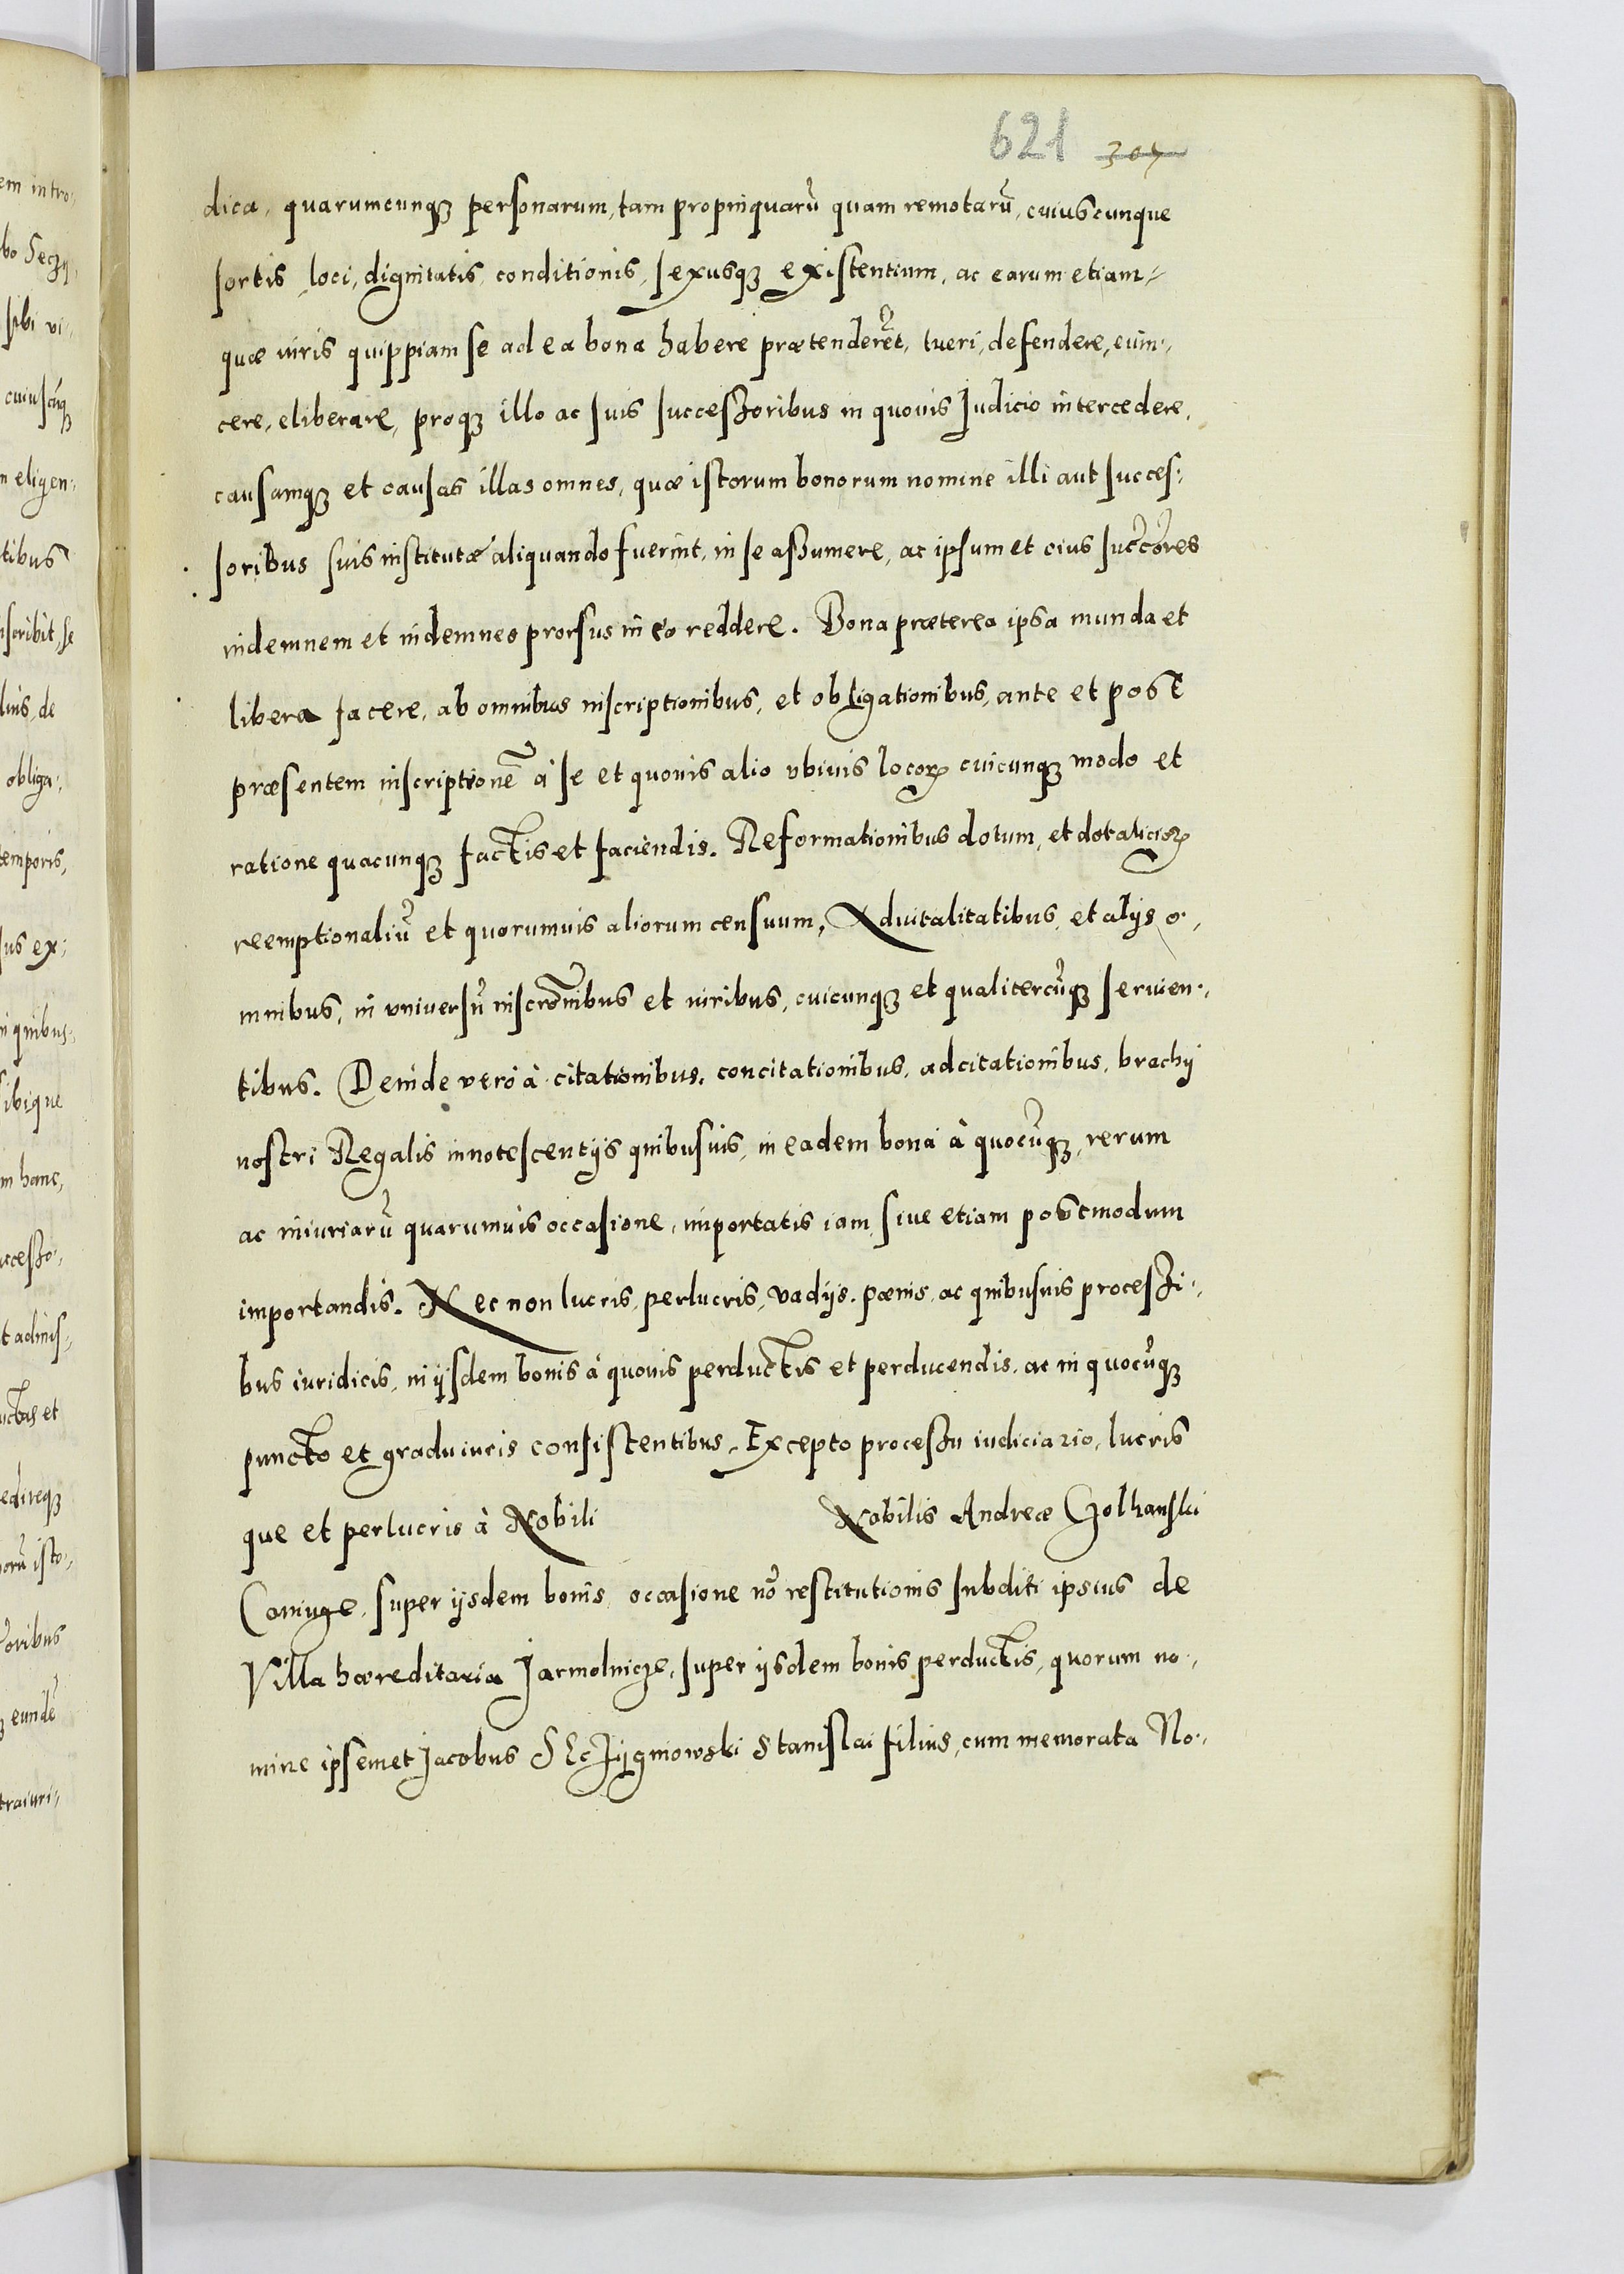 621 307
dica, quarumcunqꝫ personarum, tam propinquarũ quam remotarũ, cuiuscunque
sortis, loci, dignitatis, conditionis, sexusqꝫ existentium, ac earum etiam
quæ iuris quippiam se ad ea bona habere prætenderẽt, tueri, defendere, euin-
cere, eliberare, proqꝫ illo ac suis successoribus in quouis Judicio intercedere,
causamqꝫ et causas illas omnes, quæ istorum bonorum nomine illi aut succes-
soribus suis institutæ aliquando fuerint, in se assumere, ac ipsum et eius succc̃ores
indemnem et indemnes prorsus in eo reddere. Bona præterea ipsa munda et
libera facere, ab omnibus inscriptionibus, et obligationibus, ante et post
præsentem inscriptionẽ à se et quouis alio vbiuis locorꝝ cuicunqꝫ modo et
ratione quacunqꝫ factis et faciendis. Reformationibus dotum, et dotaliciorꝝ
reemptionaliũ et quorumuis aliorum censuum, Aduitalitatibus, et alijs o-
mnibus, in vniuersũ inscrõnibus et iuribus, cuicunqꝫ et qualitercũqꝫ seruien-
tibus. Deinde verò à citationibus, concitationibus, adcitationibus, brachij
nostri Regalis innotescentijs quibusuis, in eadem bona à quocũqꝫ, rerum
ac iniuriarũ quarumuis occasione, importatis iam, siue etiam postmodum
importandis. Nec non lucris, perlucris, vadijs, pœnis, ac quibusuis processi-
bus iuridicis, in ijsdem bonis à quouis perductis et perducendis, ac in quocũqꝫ
puncto et gradu iuris consistentibus. Excepto processu iudiciario, lucris
que et perlucris à Nobili Nobilis Andreæ Golhanski
Coniuge, super ijsdem bonis, occasione nõ restitutionis subditi ipsius de
Villa hæreditaria Jarmolincze, super ijsdem bonis perductis, quorum no-
mine ipsemet Jacobus Stanislai filius, cum memorata No-